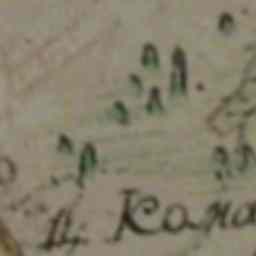 Д. Кома